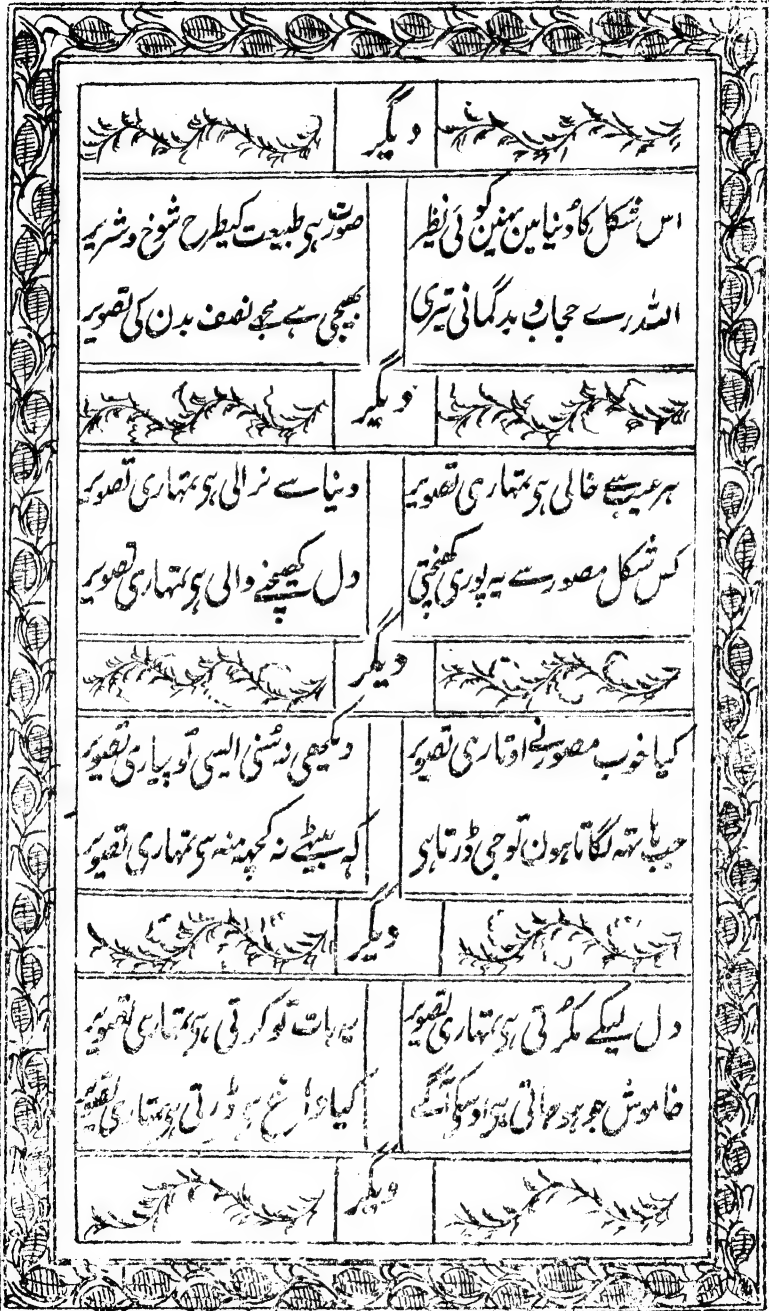 دیگر
اس شکل کا دُنیا مین نہین کوئی نظیر صورت ہی طبیعت کیطرح شوخ و شریر
اللہ رے حجاب و بدگمانی تیری بھیجی ہے مجھے نصف بدن کی تصویر
دیگر
ہر عیب سے خالی ہی تمہاری تصویر دنیا سے نرالی ہی تمہاری تصویر
کس شکل مصور سے یہ پوری کھنچتی دل کھینچنے والی ہی تمہاری تصویر
دیگر
کیا خوب مصور نے اوتاری تصویر دیکھی نہ سُنی ایسی تو پیاری تصویر
جب ہاتہہ لگاتا ہون تو جی ڈرتا ہی کہ بیٹھے نہ کچہہ منہ سی تمہاری تصویر
دیگر
دل لیکے مکُرتی ہی تمہاری تصویر یہ بات تو کرتی ہی تمہاری تصویر
خاموش جو ہو جاتی ہی اوسکو آگے کیا داغ سے ڈرتی ہی تمہاری تصویر
دیگر